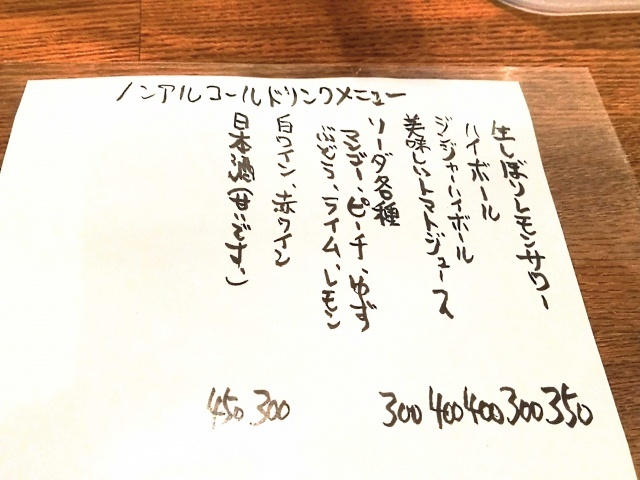 ノンアルコールドリンクメニュー
生しぼりレモンサワー 350
ハイボール 300
ジンジャーハイボール 400
美味しいトマトジュース 400
ソーダ各種 300
マンゴー、ピーチ、ゆず
ぶどう、ライム、レモン
白ワイン、赤ワイン 300
日本酒(甘いです。) 450